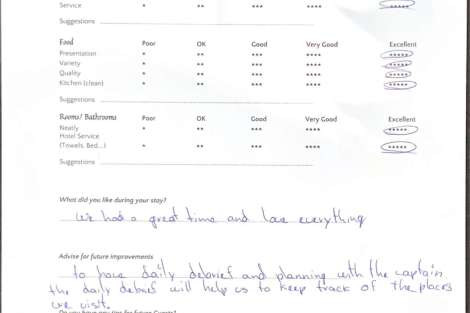 Service * ** *** **** *****
Suggestions
Food Poor OK Good Very Good Excellent
Presentation * ** *** **** *****
Variety * ** *** **** *****
Quality * ** *** **** *****
Kitchen (clean) * ** *** **** *****
Suggestions
Rooms/ Bathrooms Poor OK Good Very Good Excellent
Neatly * ** *** **** *****
Hotel Service
(Towels, Bed...) * ** *** **** *****
Suggestions
What did you like during your stay?
We had a great time and love everything
Advise for future improvements
to have daily debrief and planning with the captain
the daily debrief will help us to keep track of the places
we visit.
Do you have any tips for future Guests?